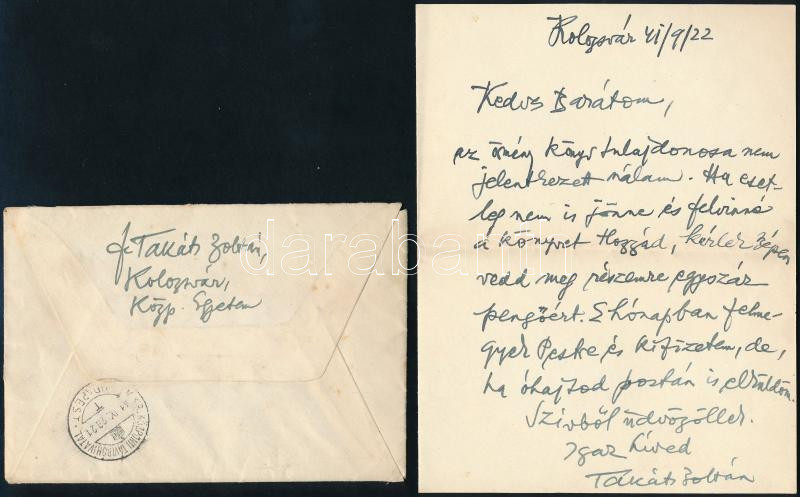 Kolozsvár 41/9/22
Kedves Barátom,
az örmény könyv tulajdonosa nem
jelentkezett nálam. Ha eset-
leg nem is jönne és felvinné
a könyvet Hozzád, kérlek szépen
vedd meg részemre egyszáz
pengőért. E hónapban felme-
gyek Pestre és kifizetem, de,
ha óhajtod postán is elküldöm.
Szivből üdvözöllek
Igaz híved
Takáts Zoltán
f. Takáts Zoltán,
Kolozsvár,
Közp. Egyetem
KÖZPONTI TÁVIRÓHIVATAL
BUDAPEST
darabanth